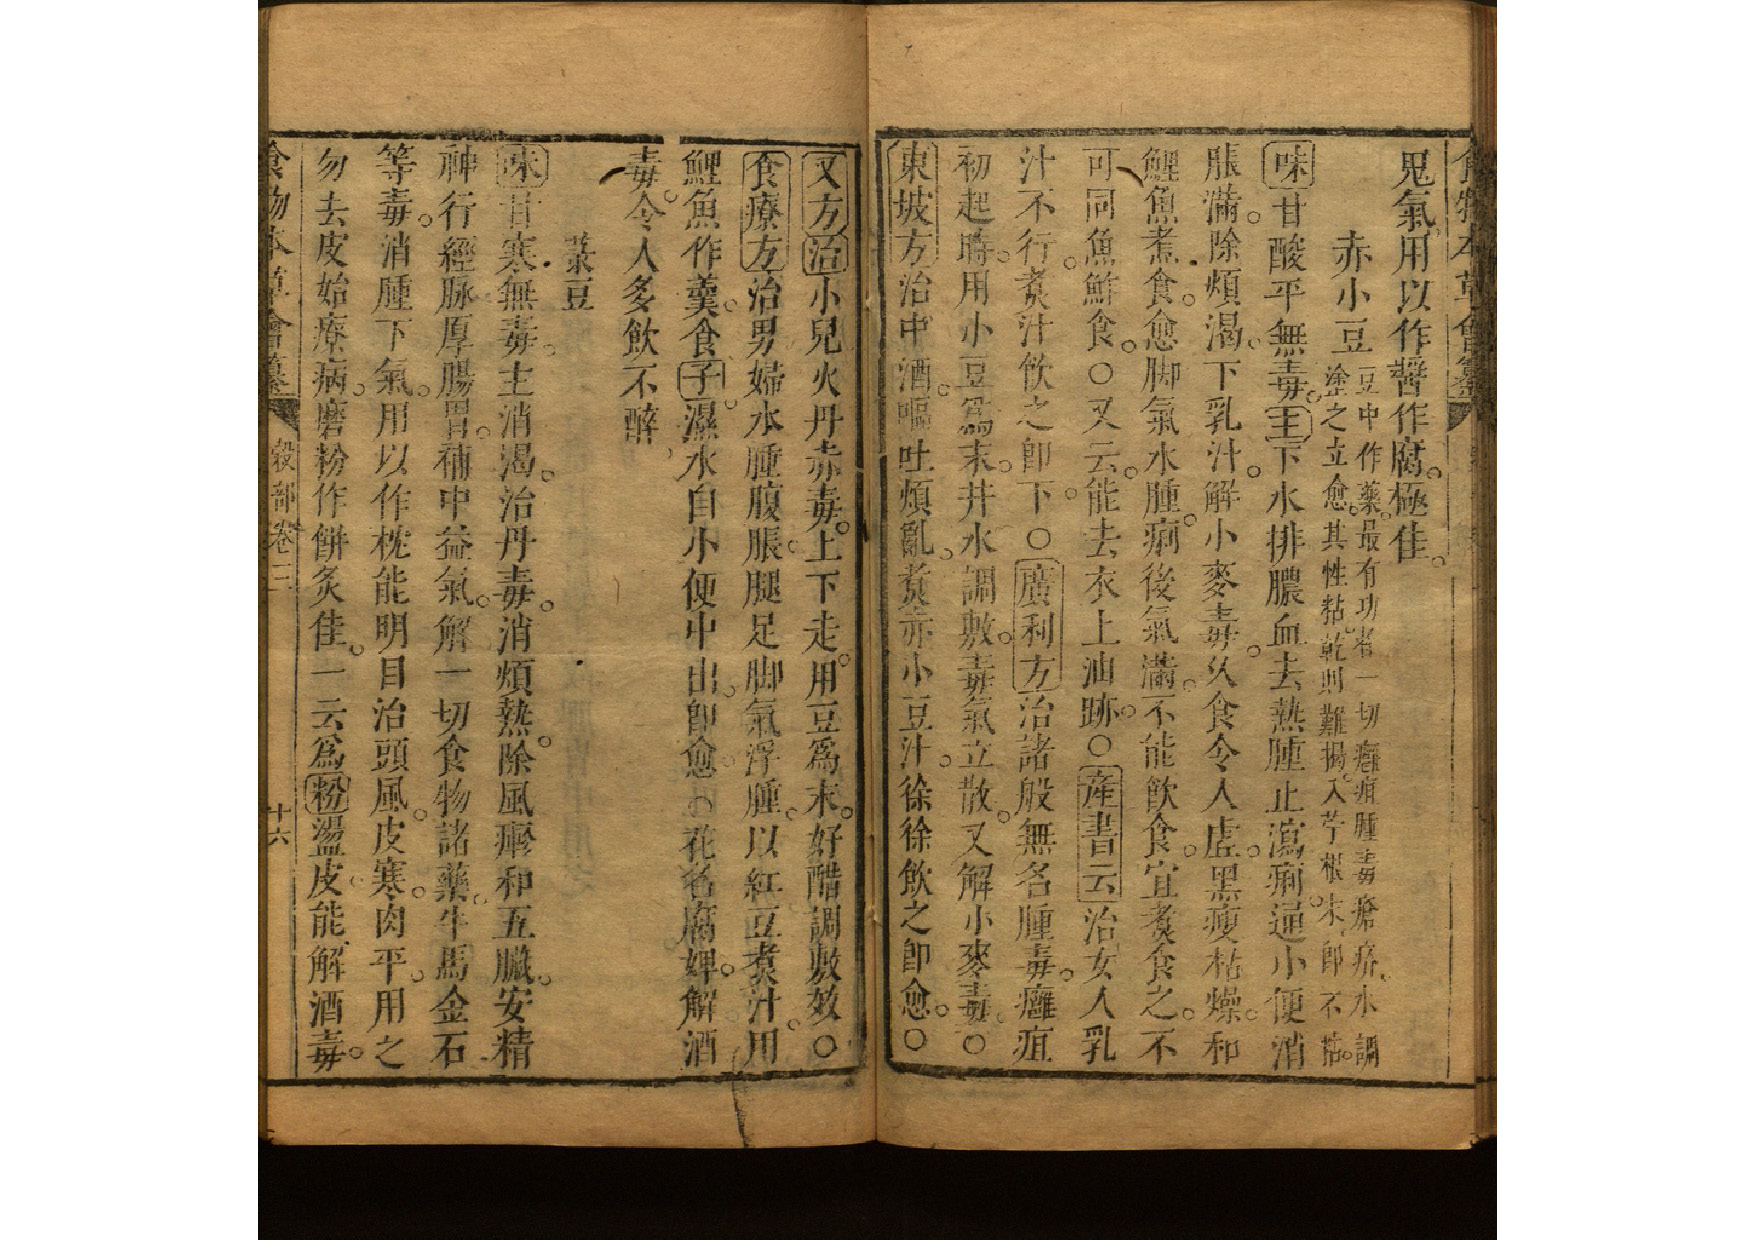 食物本草會纂
鬼氣用以作醬作腐極佳
赤小豆
豆中作藥最有功者一切癰疽腫毒瘡疥水調
塗之立愈其性粘乾則難揭入苧根末即不粘
味甘酸平無毒主下水排膿血去熱腫止瀉痢通小便消
脹滿除煩渴下乳汁解小麥毒久食令人虛黑瘦枯燥和
鯉魚煮食愈脚氣水腫痢後氣滿不能飲食宜煮食之不
可同魚鮓食〇又云能去衣上油跡〇產書云治女人乳
汁不行煮汁飲之即下〇廣利方治諸般無名腫毒癰疽
初起時用小豆爲末井水調敷毒氣立散又解小麥毒〇
東坡方治中酒嘔吐煩亂煮赤小豆汁徐徐飲之即愈〇
又方治小兒火丹赤毒上下走用豆爲末好醋調敷效〇
食療方治男婦水腫腹脹腿足脚氣浮腫以紅豆煮汁用
鯉魚作羹食子濕水自小便中出即愈〇花名腐婢解酒
毒令人多飲不醉
菉豆
味甘寒無毒主消渴治丹毒消煩熱除風癗和五臟安精
神行經脉厚腸胃補中益氣解一切食物諸藥牛馬金石
等毒消腫下氣用以作枕能明目治頭風皮寒肉平用之
勿去皮始療病磨粉作餅炙佳一云爲粉盪皮能解酒毒
食物本草會纂
穀部卷二
十六